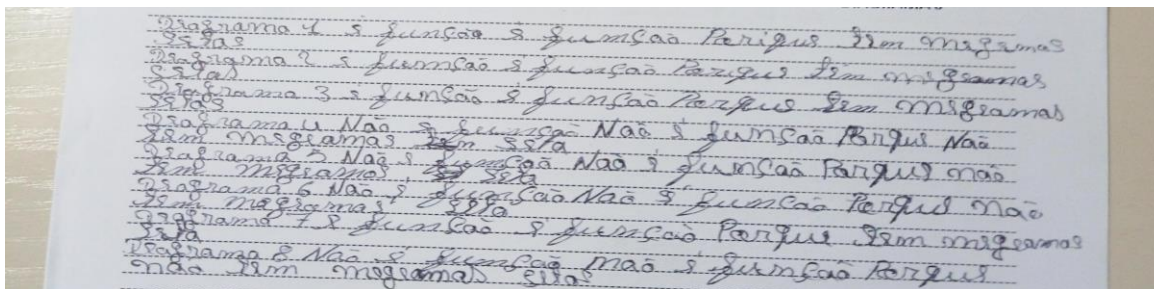 Diagrama 1 é função é função Porique tem mesgmas
setas
Diagrama 2 é função é função Porique tem mesgmas
setas
Diagrama 3 é função é função Porque tem mesgmas
setas
Diagrama 4 Não é função Não é função Porque Não
tem mesgmas seta
Diagrama 5 Não é função Não é função Porque não
tem mesgmas, seta
Diagrama 6 Não é função Não é função Porque não
tem mesgmas seta
Diagrama 7 é função é função Porque tem mesgmas
seta
Diagrama 8 Não é função não é função Porque
não tem mesgmas setas